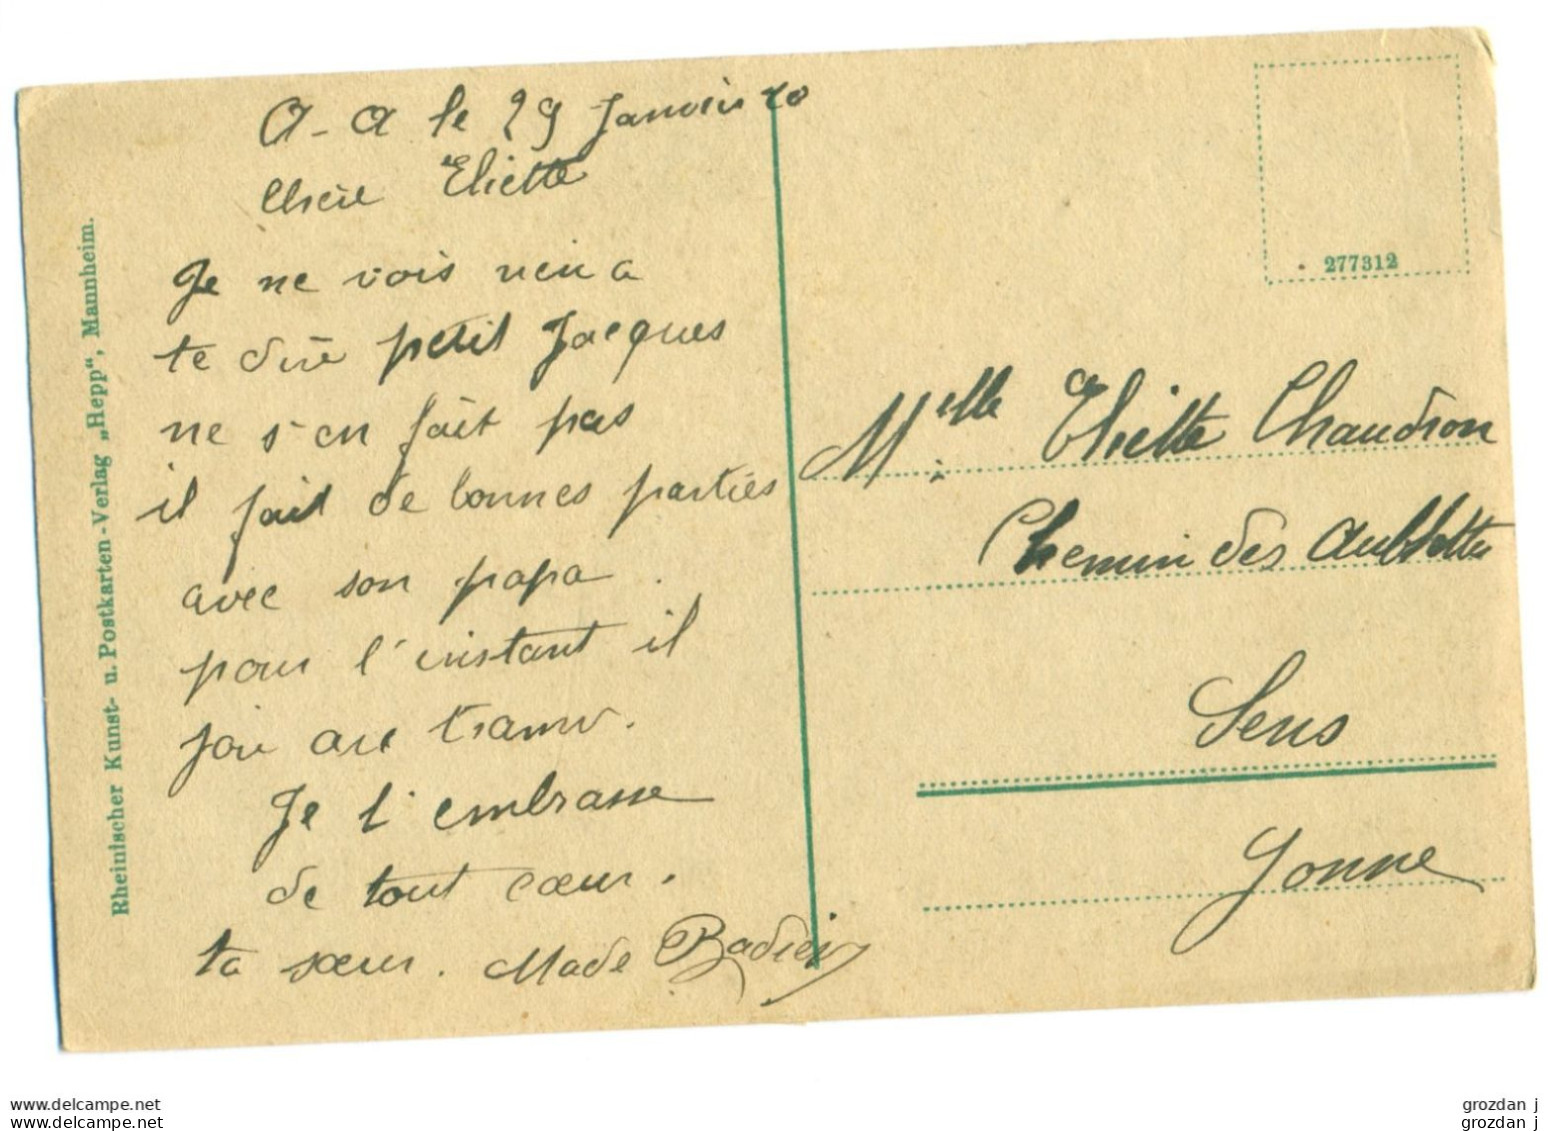 a-a le 29 Janvier 20
Chère Eliette
Je ne vois rien a
te dire petit Jacques
ne s'en fait pas
il fait de bonnes parties
avec son papa.
pour l'instant il
joue au tramv.
Je t'embrasse
de tout cœur.
ta sœur. Made Badier
Rheinischer Kunst- u. Postkarten-Verlag „Hepp“, Mannheim.
277312
Melle Eliette Chaudron
Chemin des
Sens
Yonne
delcampe.net
delcampe.net
grozdan j
grozdan j